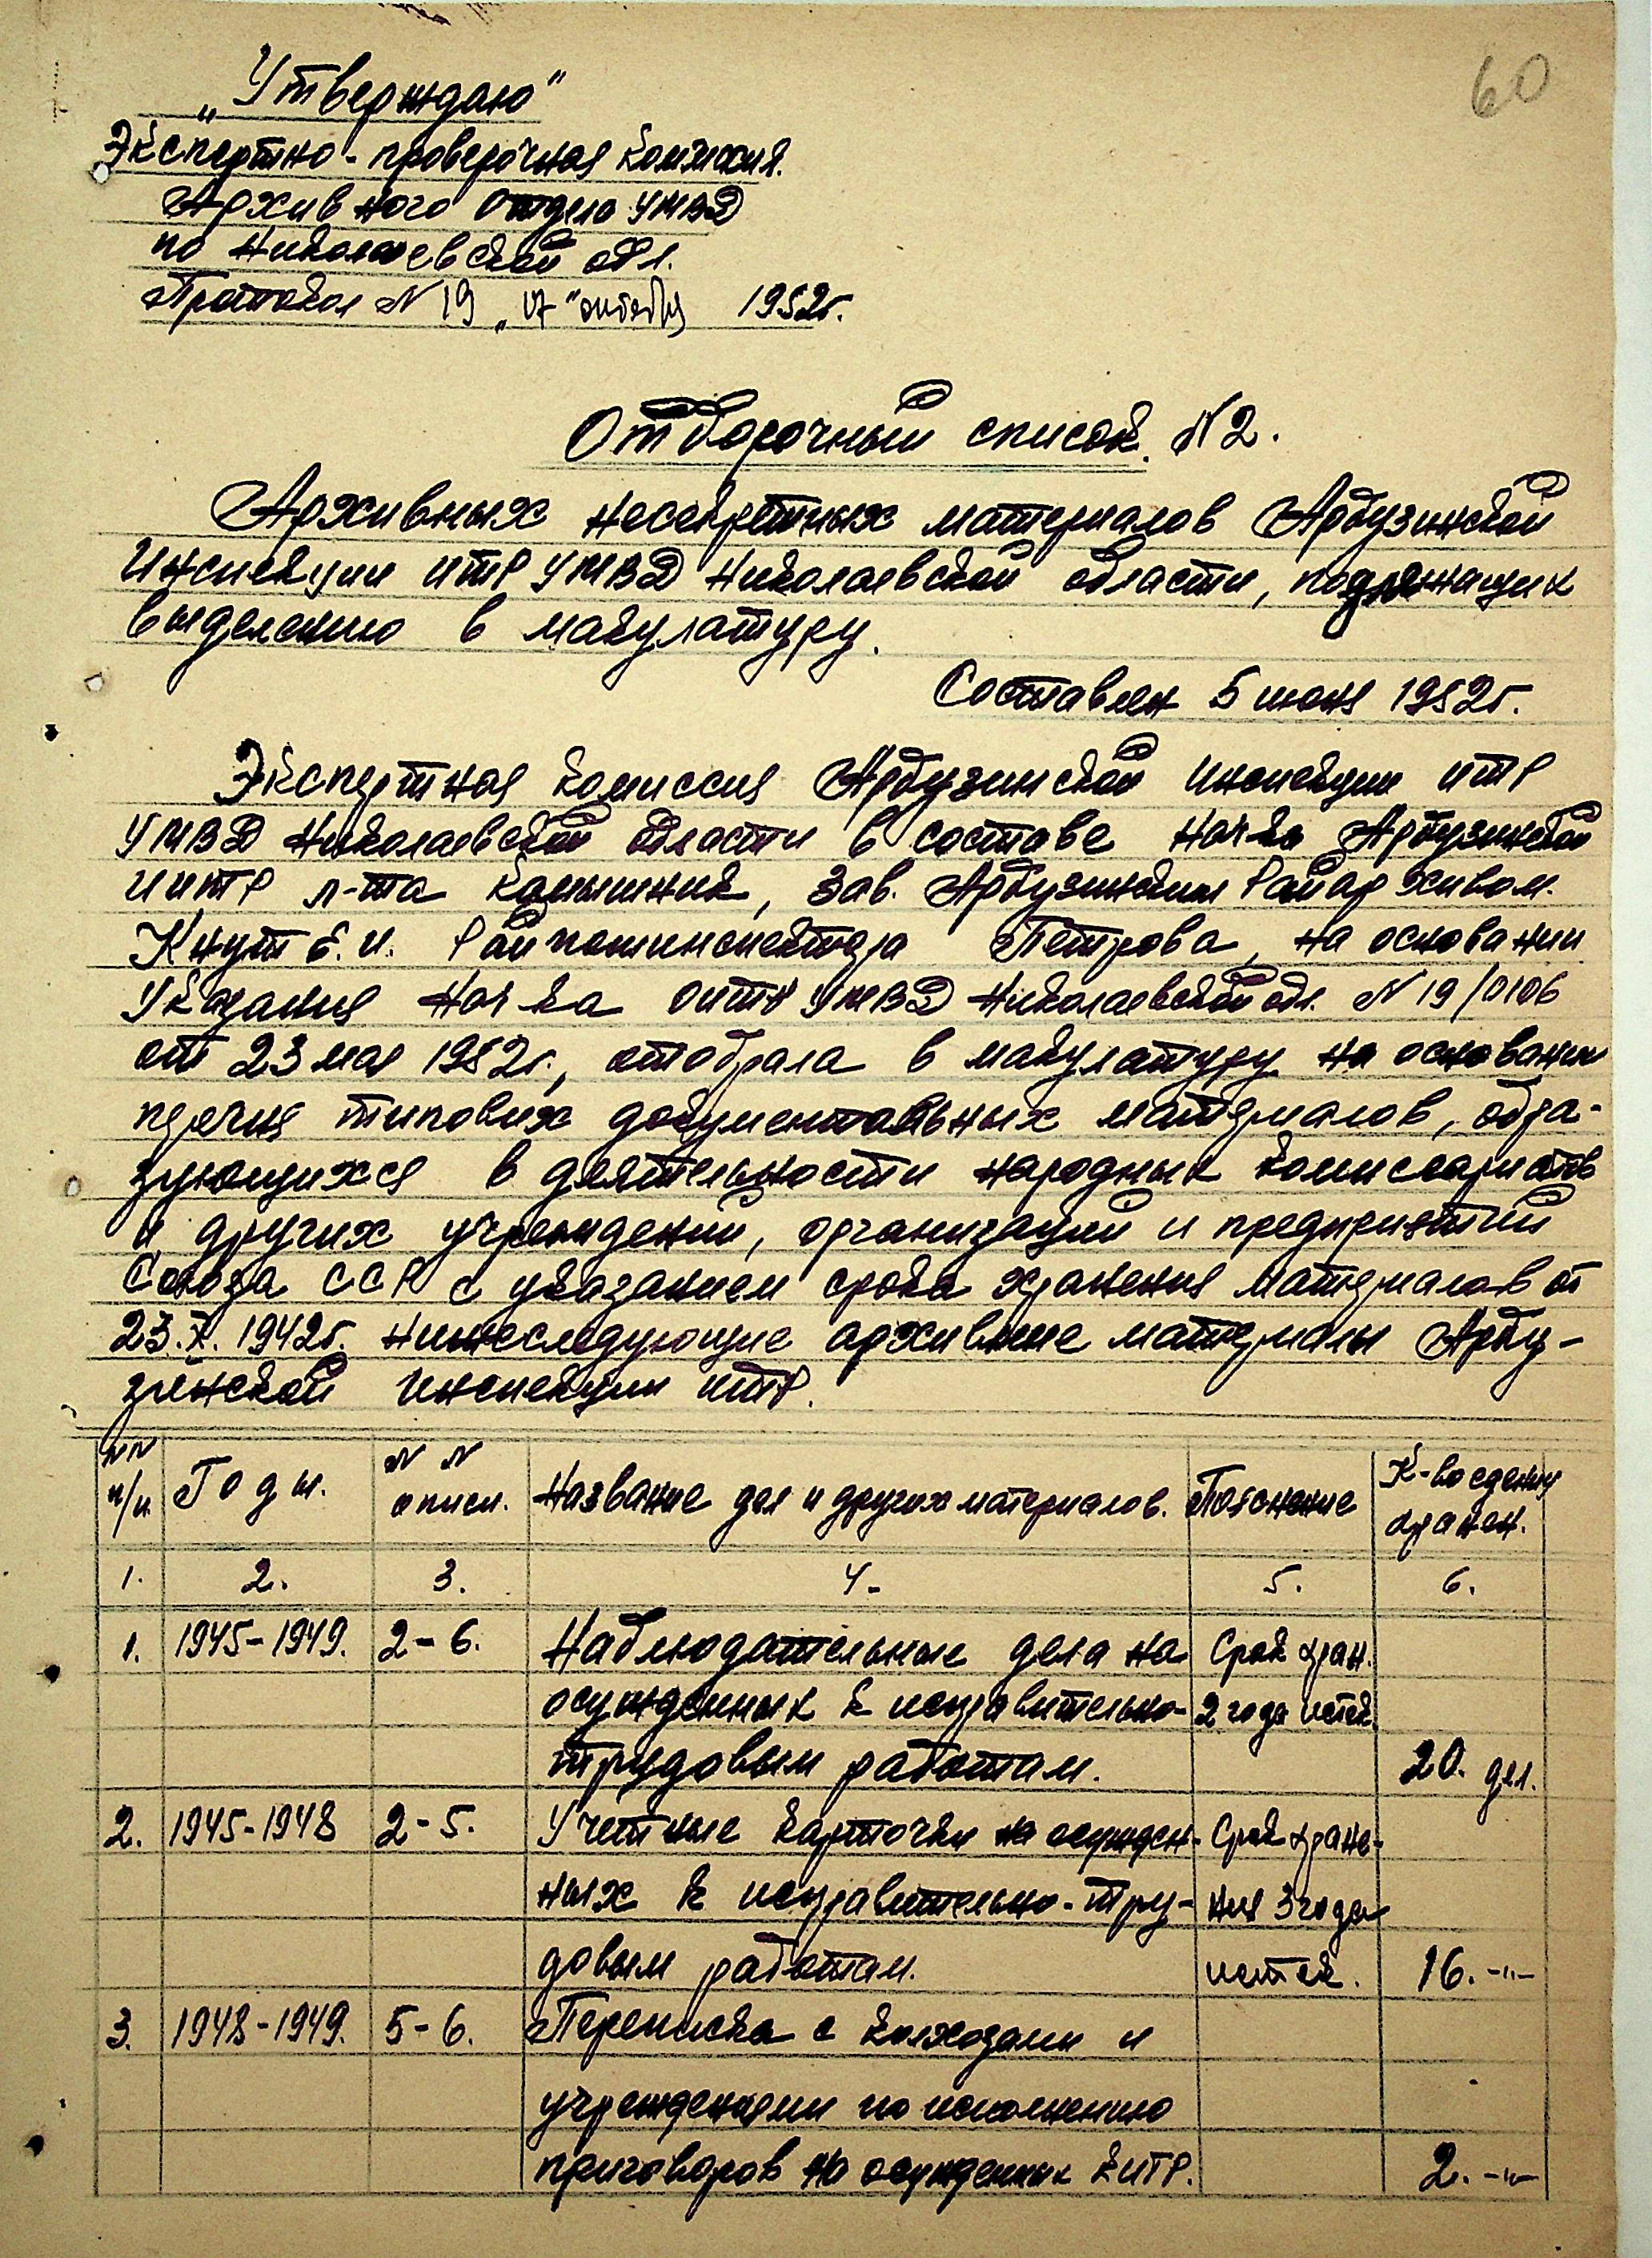 60
„Утверждаю"
Экспертно-проверочная комиссия.
Архивного Отдела УМВД
по Николаевской обл.
Протокол N 19 „17" октября 1952г.
Отборочный список N2.
Архивных несекретных материалов Арбузинской
Инспекции ИТР УМВД Николаевской области, подлежащих
выделению в макулатуру.
Составлен 5 июня 1952г.
Экспертная комиссия Арбузинской инспекции ИТР
УМВД Николаевской области в составе Нач-ка Арбузинской
ИИТР л-та Камышник, Зав. Арбузинским Райархивом.
Кнут Е.И. Рай Пожинспектора Петрова, на основании
Указания Нач-ка ОИТК УМВД Николаевской обл. N 19/0106
от 23 мая 1952г., отобрала в макулатуру на основании
перечня типових документальных материалов, обра-
зующихся в деятельности народных комиссариатов
и других учреждений, организаций и предприятий
Союза ССР с указанием срока хранения материалов от
23.X.1942г. нижеследующие архивные материалы Арбу-
зинской инспекции ИТР.
NN п/п Годы. NN описи. Название дел и других материалов. Пояснение К-во единиц хранен.
1. 2. 3. 4. 5. 6.
1. 1945-1949. 2-6. Наблюдательные дела на Срок хран.
осужденных к исправительно- 2 года истек.
трудовым работам. 20. дел.
2. 1945-1948 2-5. Учетные карточки на осужден- Срок хране-
ных к исправительно-тру- ния 3 года
довым работам. истек. 16. -"-
3. 1948-1949. 5-6. Переписка с колхозами и
учреждениями по исполнению
приговоров на осужденных к ИТР. 2. -"-